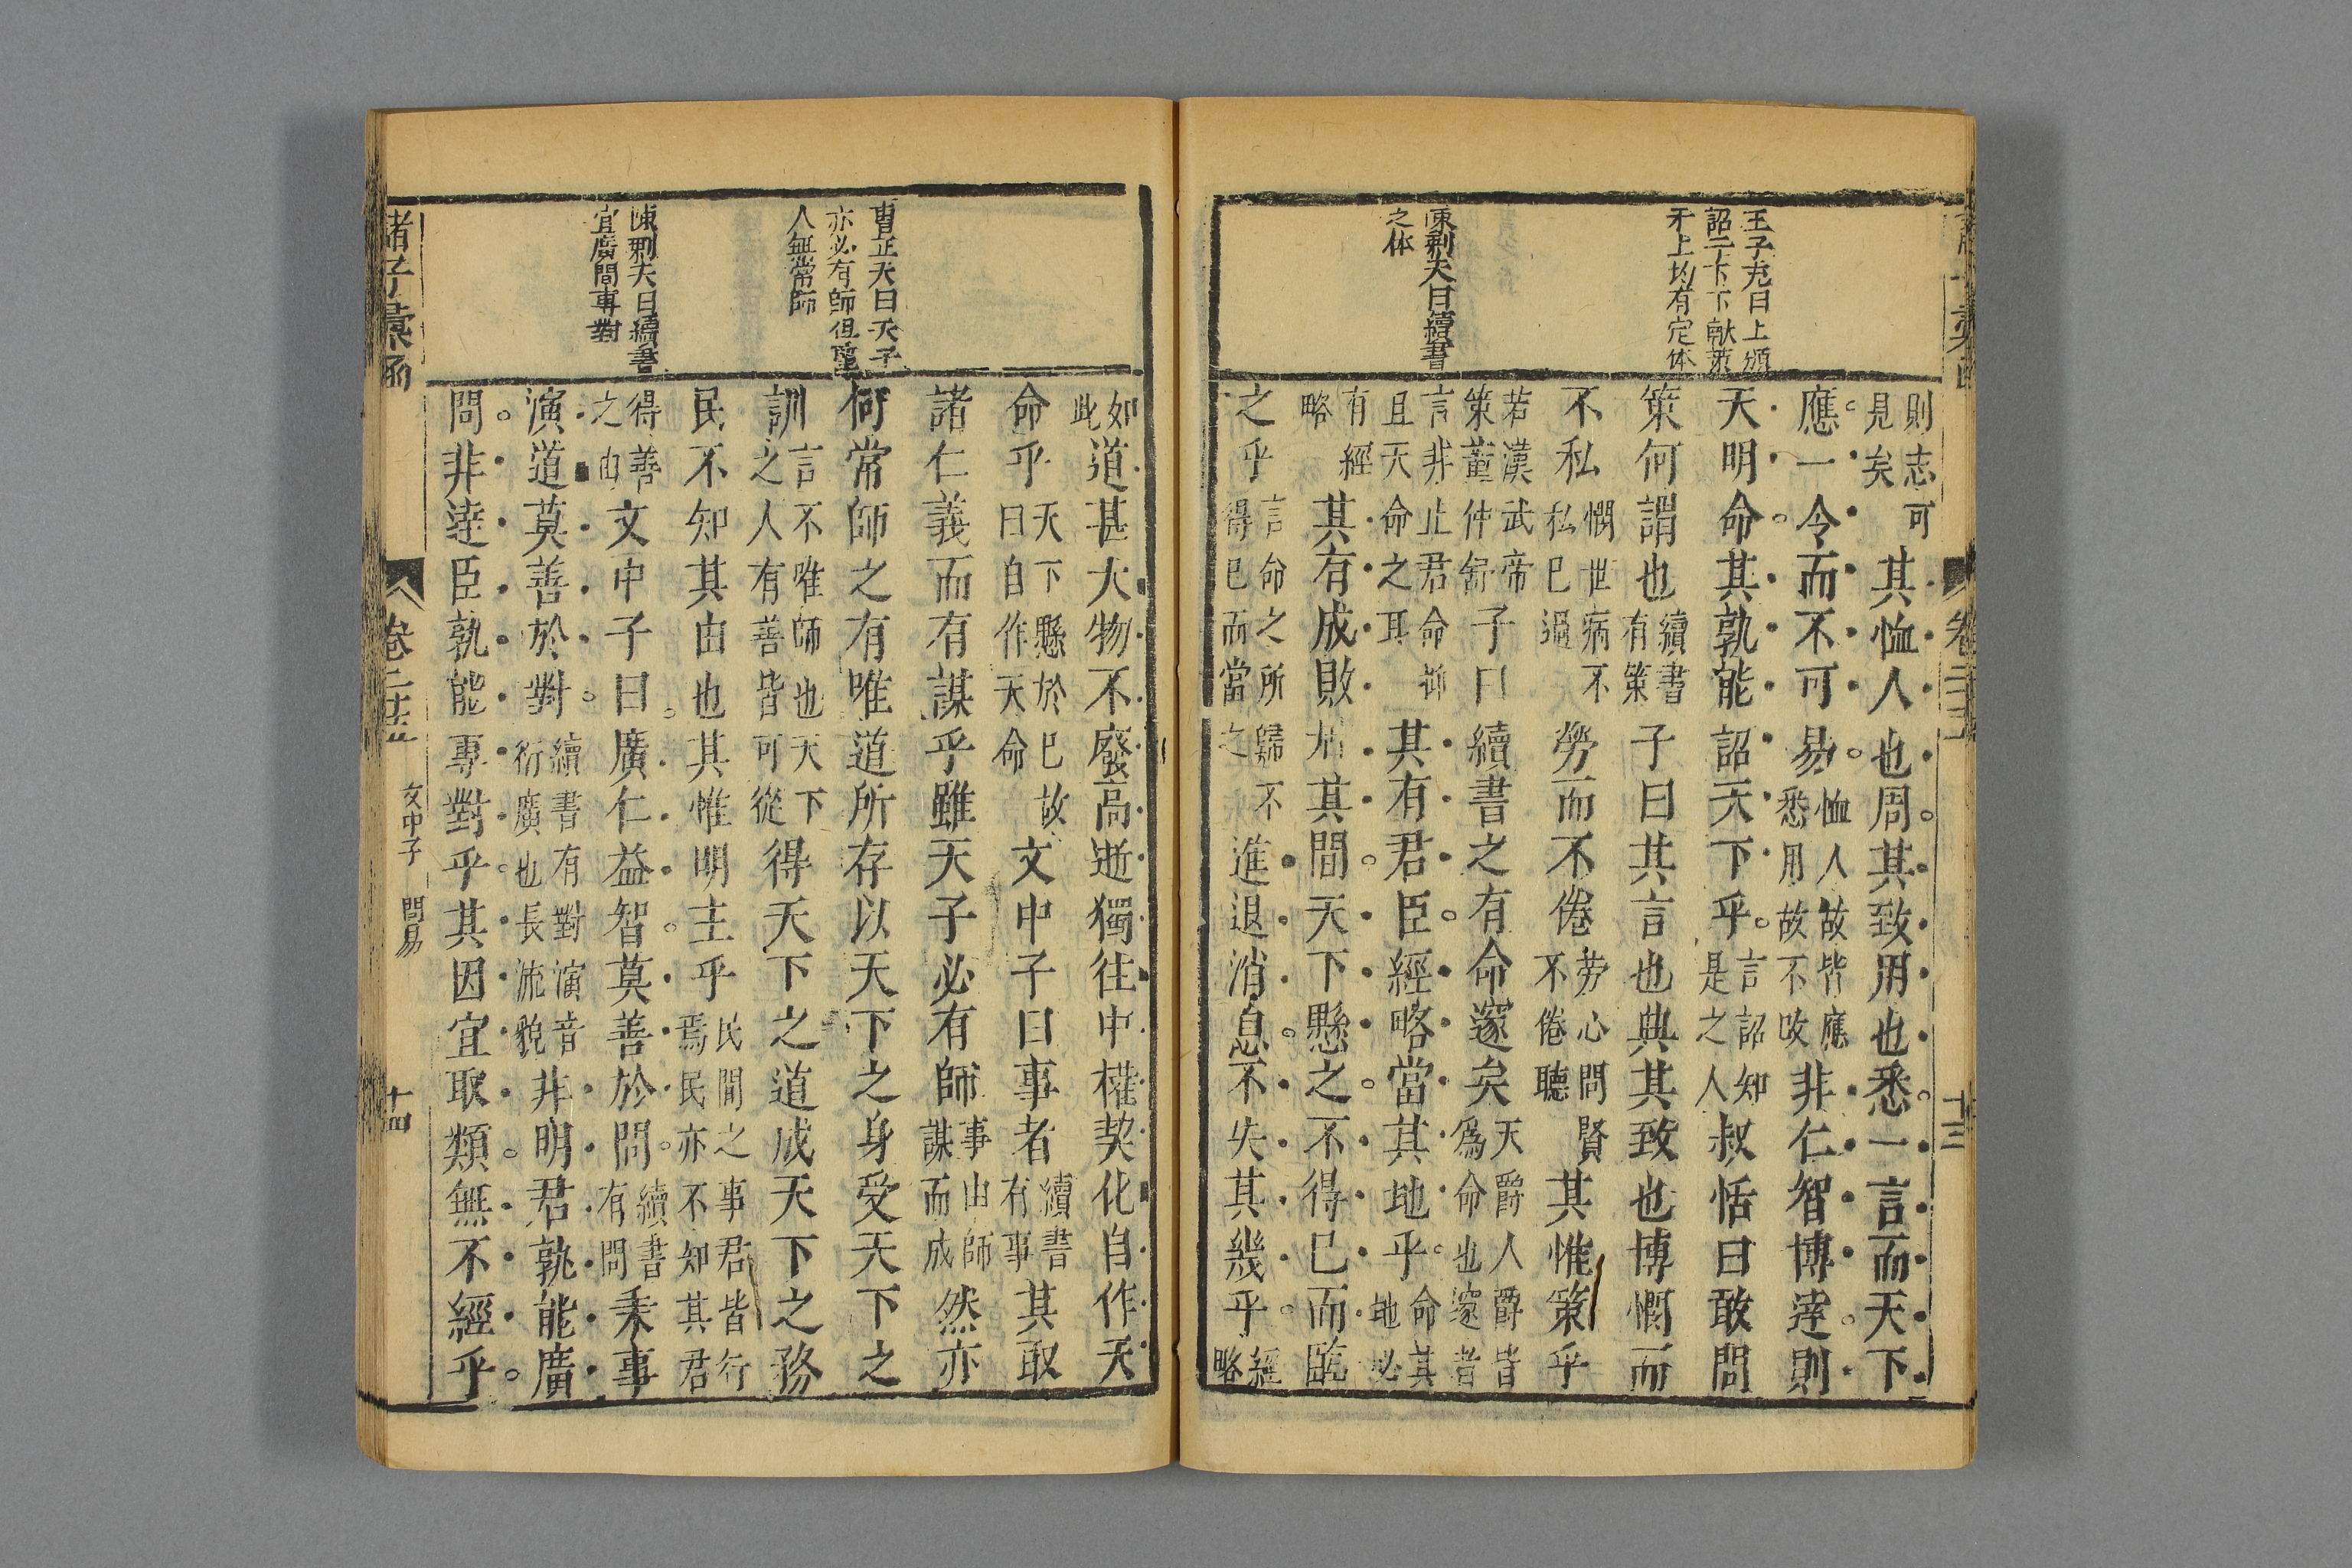 王子充曰上頒
詔二下下献策
于上均有定体
陳剩夫曰續書
之体
則志可
見矣
其恤人也周其致用也悉一言而天下
應一令而不可易
恤人故皆應
悉用故不改
非仁智博達則
天明命其孰能詔天下乎
言詔知
是之人
叔恬曰敢問
策何謂也
續書
有策
子曰其言也典其致也博憫而
不私
憫世病不
私已過
勞而不倦
劳心問賢
不倦聽
其惟策乎
若漢武帝
策董仲舒
子曰續書之有命邃矣
天爵人爵皆
爲命也邃者
言非止君命抑
且天命之耳
其有君臣經略當其地乎
命其
地必
有經
略
其有成敗於其間天下懸之不得已而臨
之乎
言命之所歸不
得已而當之
進退消息不失其幾乎
經
略
曹正夫曰天子
亦必有師但聖
人無常師
陳剩夫曰續書
宜廣問專對
如
此
道甚大物不廢高逝獨往中權契化自作天
命乎
天下懸於已故
曰自作天命
文中子曰事者
續書
有事
其取
諸仁義而有謀乎雖天子必有師
事由師
謀而成
然亦
何常師之有唯道所存以天下之身受天下之
訓
言不唯師也天下
之人有善皆可從
得天下之道成天下之務
民不知其由也其惟明主乎
民間之事君皆行
焉民亦不知其君
得善
之由
文中子曰廣仁益智莫善於問
續書
有問
乘事
演道莫善於對
續書有對演音
衍廣也長流貌
非明君孰能廣
問非達臣孰能專對乎其因宜取類無不經乎
諸子彙函
文中子
問易
十四